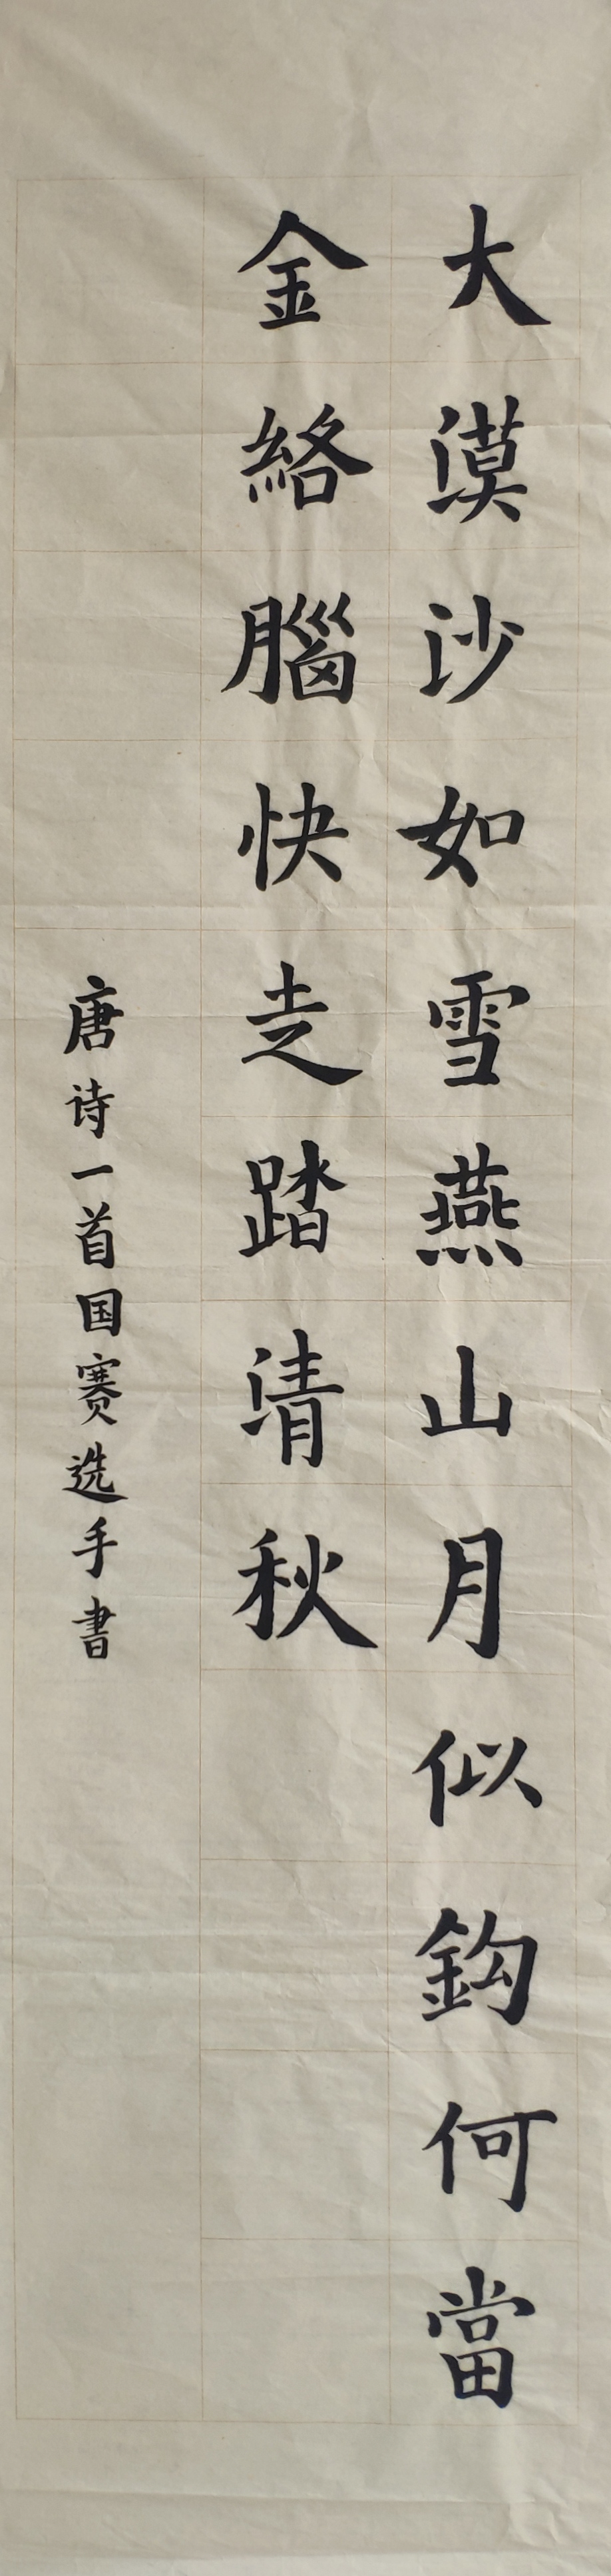 大漠沙如雪燕山月似鈎何當
金絡腦快走踏清秋
唐诗一首国赛选手書